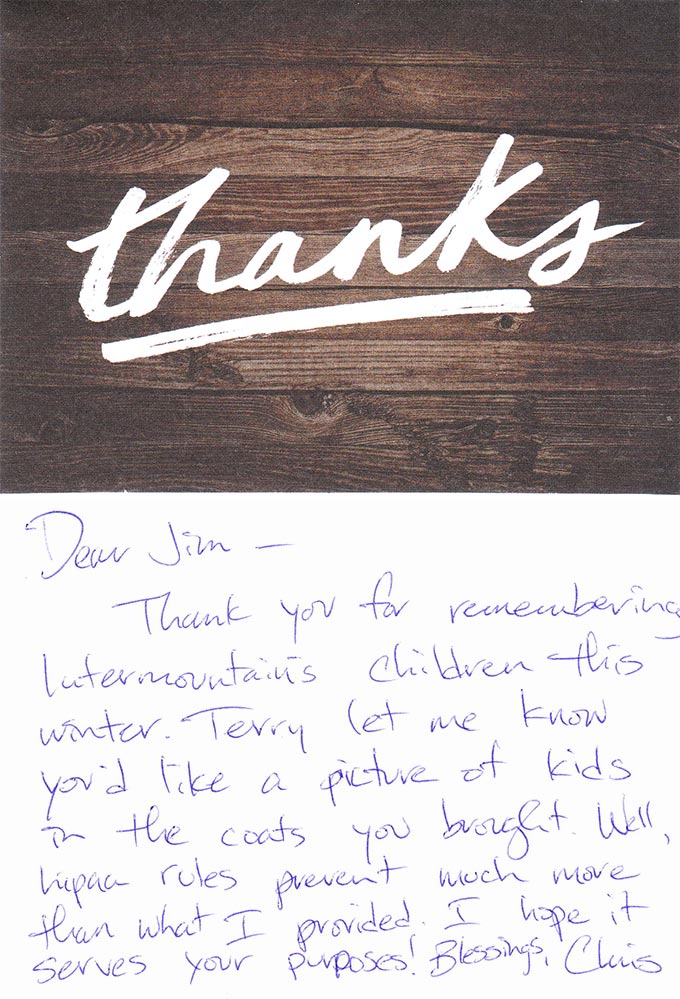 thanks
Dear Jim —
Thank you for remembering
Intermountain's children this
winter. Terry let me know
you'd like a picture of kids
in the coats you brought. Well,
hipaa rules prevent much more
than what I provided. I hope it
serves your purposes! Blessings, Chris